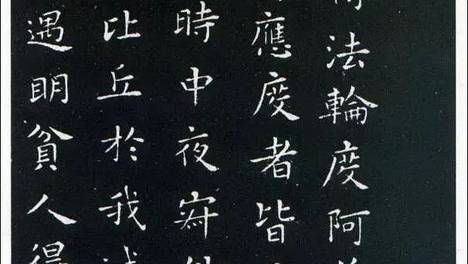 法輪度阿
應度者皆
時中夜寂
比丘於我
遇明貧人得